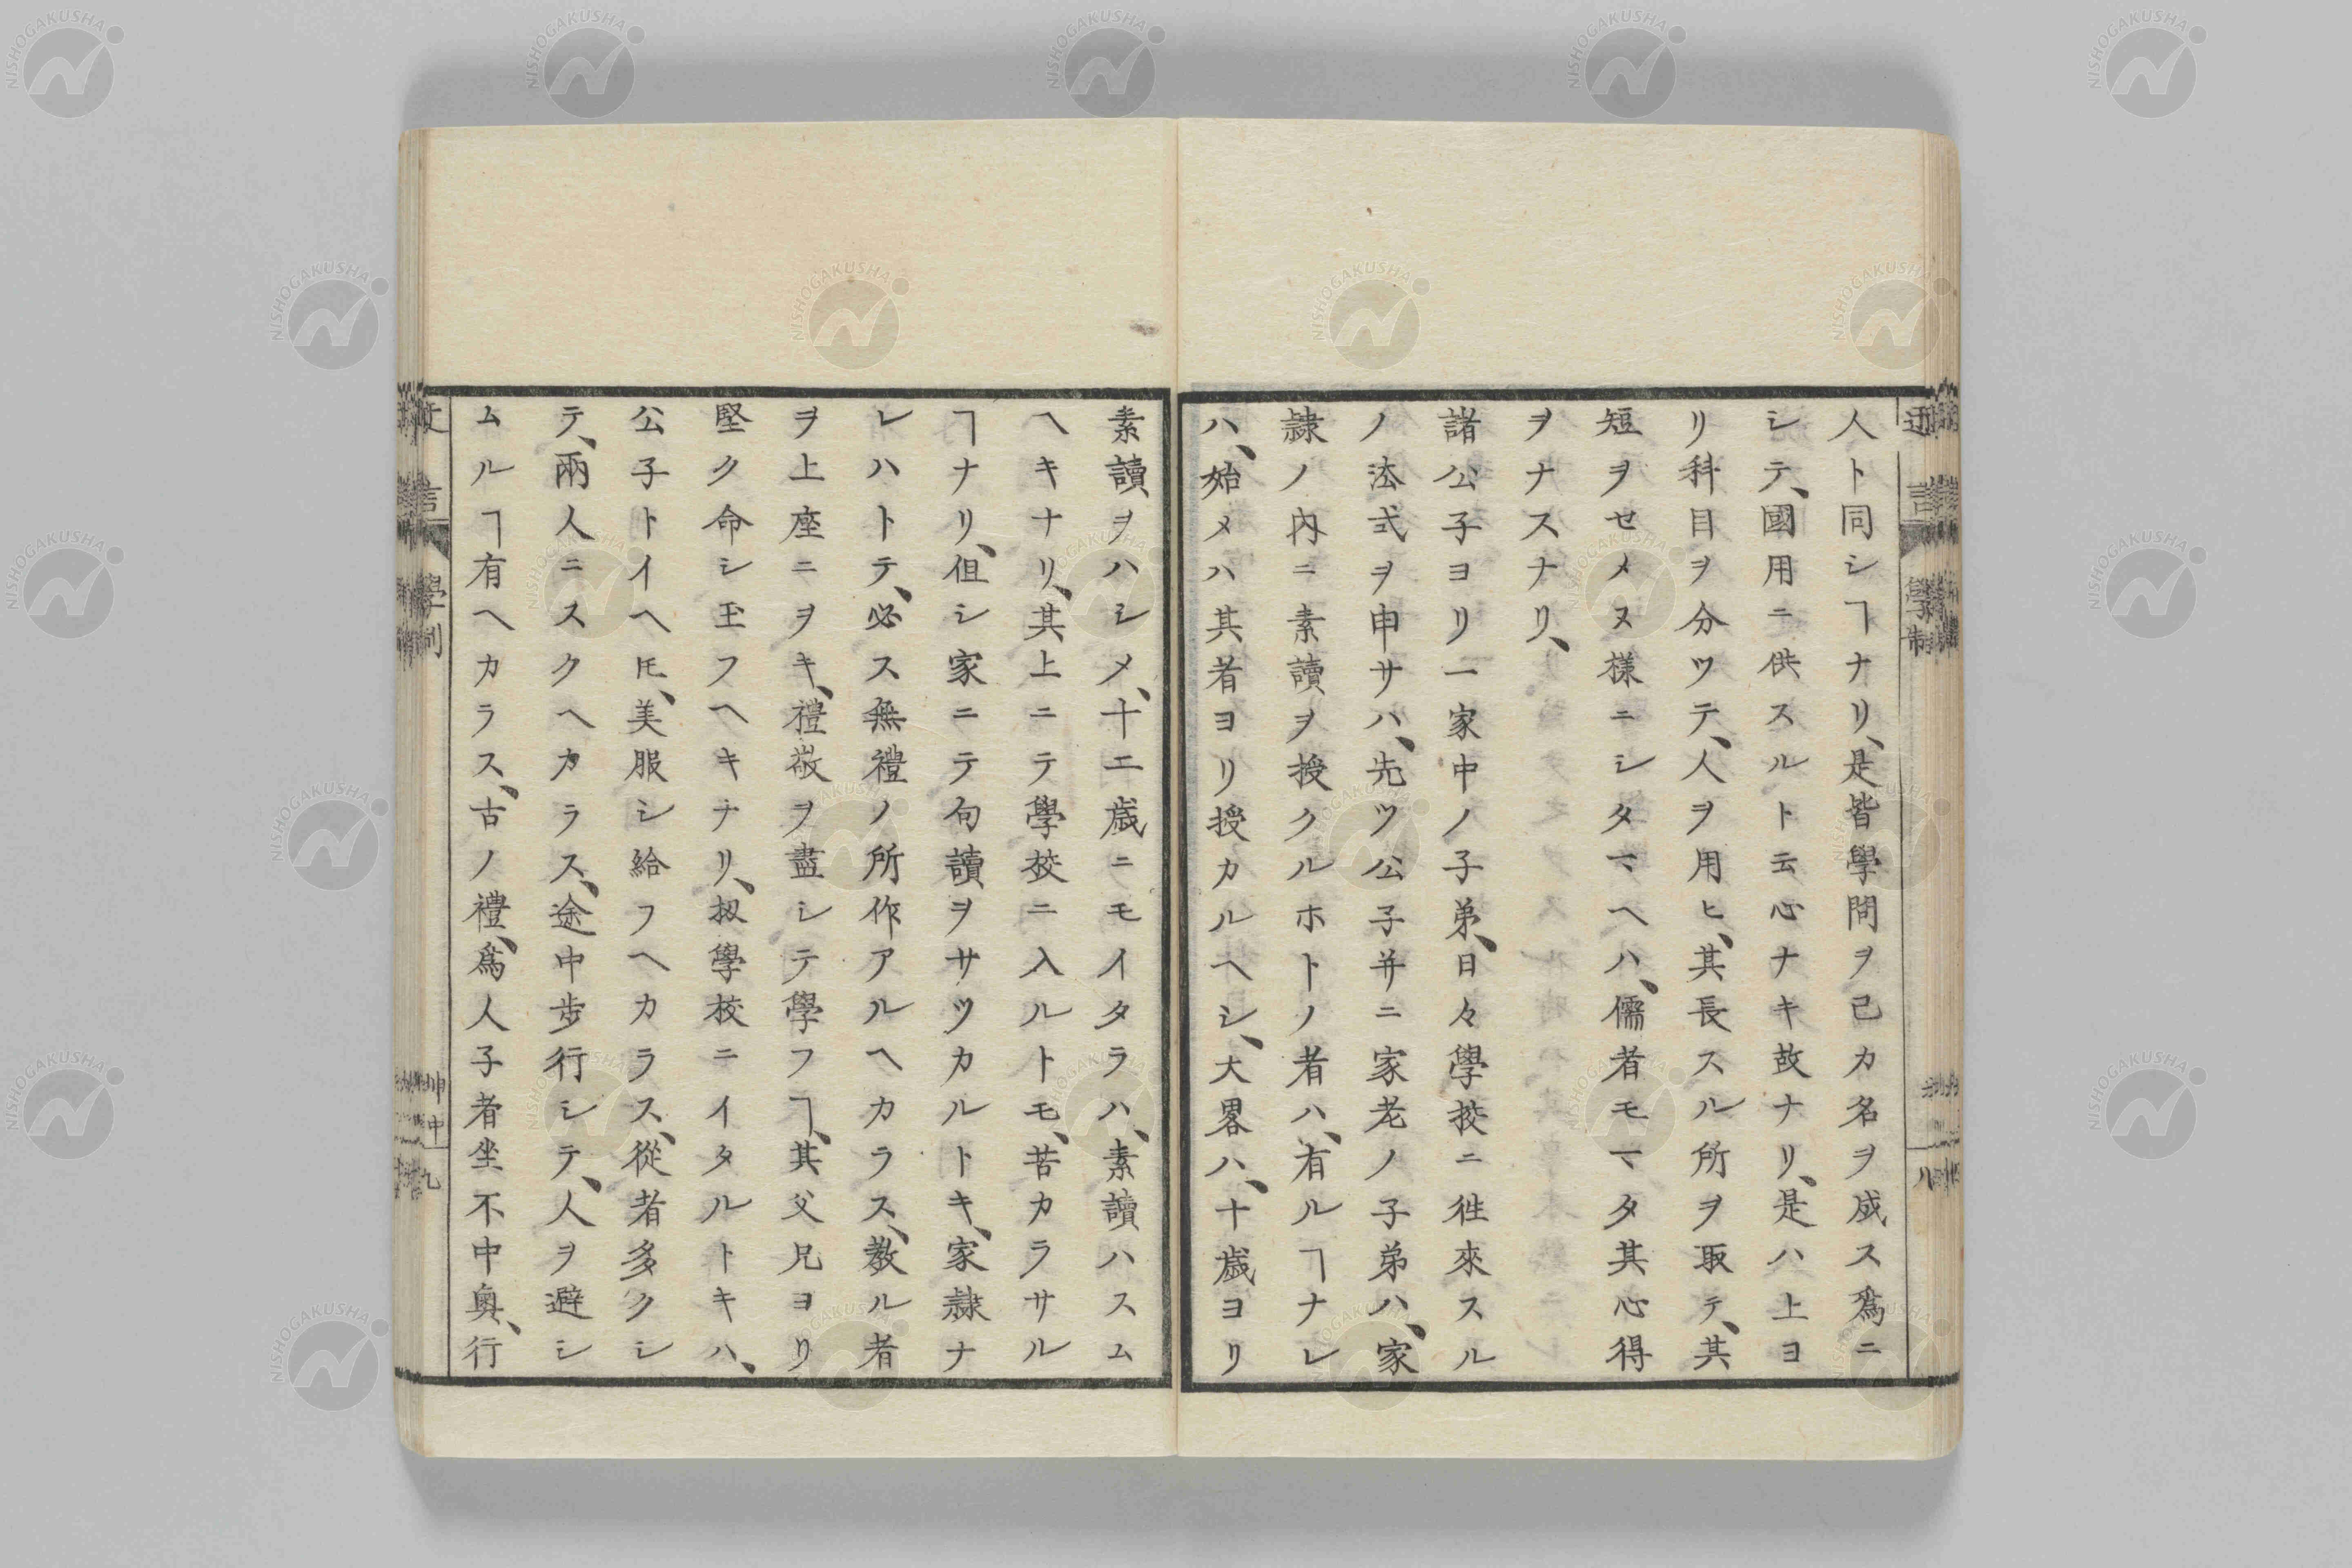 人ト同シヿナリ、是皆學問ヲ己カ名ヲ成ス爲ニ
シテ、國用ニ供スルト云心ナキ故ナリ、是ハ上ヨ
リ科目ヲ分ツテ、人ヲ用ヒ、其長スル所ヲ取テ、其
短ヲセメヌ様ニシタマヘハ、儒者モマタ其心得
ヲナスナリ、
諸公子ヨリ一家中ノ子弟、日々學挍ニ徃來スル
ノ法式ヲ申サハ、先ツ公子并ニ家老ノ子弟ハ、家
隷ノ內ニ素讀ヲ授クルホトノ者ハ、有ルヿナレ
ハ、始メハ其者ヨリ授カルヘシ、大畧ハ、十歳ヨリ
素讀ヲハシメ、十二歳ニモイタラハ、素讀ハスム
ヘキナリ、其上ニテ學挍ニ入ルトモ、苦カラサル
ヿナリ、但シ家ニテ句讀ヲサツカルトキ、家隷ナ
レハトテ、必ス無禮ノ所作アルヘカラス、教ル者
ヲ上座ニヲキ、禮敬ヲ盡シテ學フヿ、其父兄ヨリ
堅ク命シ玉フヘキナリ、扨學校ニイタルトキハ、
公子トイヘ𪜈、美服シ給フヘカラス、從者多クシ
テ、兩人ニスクヘカラス、途中步行シテ、人ヲ避シ
ムルヿ有ヘカラス、古ノ禮、爲人子者坐不中奥、行
NISHOGAKUSHA